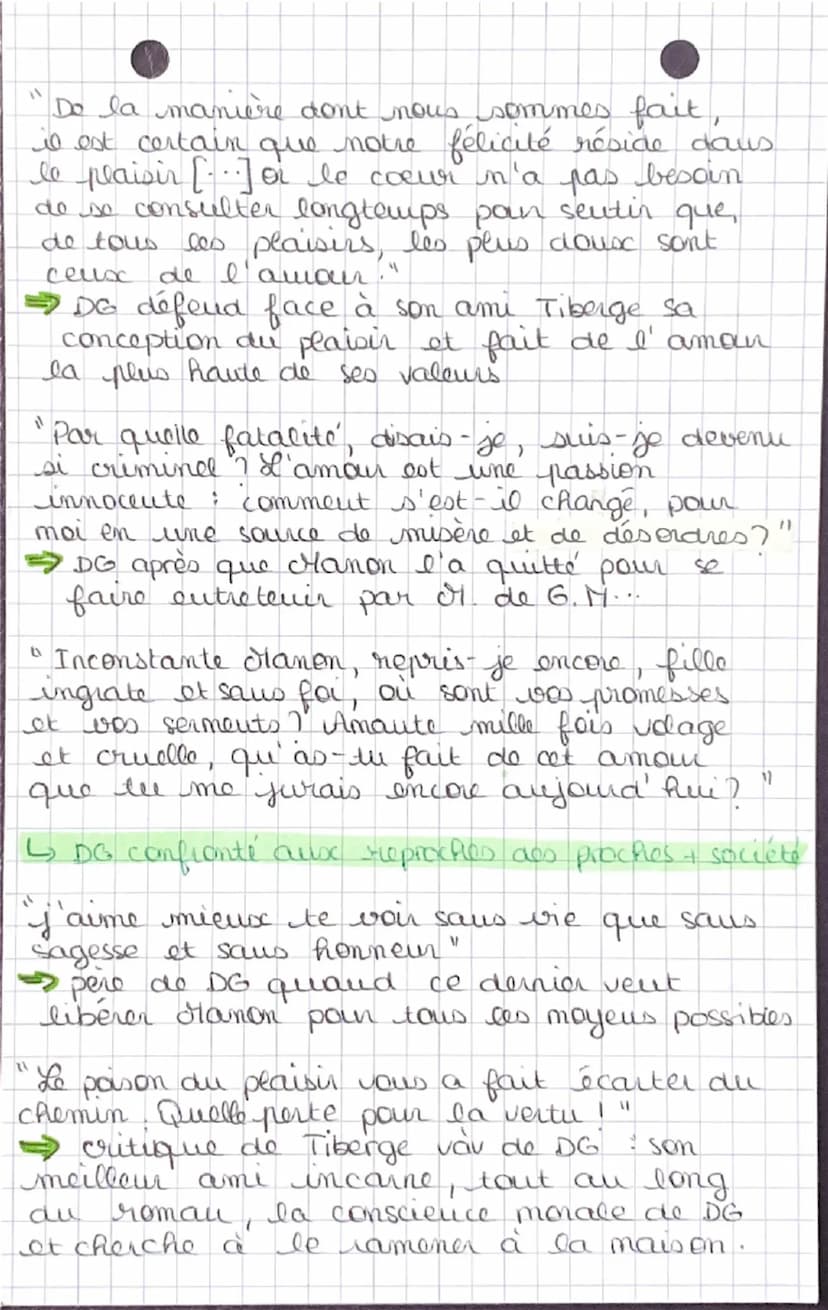 "De la manière dont nous sommes fait,
il est certain que notre félicité réside dans
le plaisir [...] or le coeur n'a pas besoin
de se consulter longtemps pour sentir que,
de tous les plaisirs, les plus doux sont
ceux de l'amour."
⇒ DG défend face à son ami Tiberge sa
conception du plaisir et fait de l'amour
la plus haute de ses valeurs
"Par quelle fatalité, disais-je, suis-je devenu
si criminel ? L'amour est une passion
innocente : comment s'est-il changé, pour
moi en une source de misère et de désordres ?"
⇒ DG après que Manon l'a quitté pour se
faire entretenir par M. de G.M...
"Inconstante Manon, repris-je encore, fille
ingrate et sans foi, où sont vos promesses
et vos serments ? Amante mille fois volage
et cruelle, qu'as-tu fait de cet amour
que tu me jurais encore aujourd'hui ? "
↳ DG confronté aux reproches des proches + société
"j'aime mieux te voir sans vie que sans
sagesse et sans honneur"
⇒ père de DG quand ce dernier veut
libérer Manon par tous les moyens possibles
"Le poison du plaisir vous a fait écarter du
chemin. Quelle perte pour la vertu ! "
⇒ critique de Tiberge vàv de DG : son
meilleur ami incarne, tout au long
du roman, la conscience morale de DG
et cherche à le ramener à la maison.